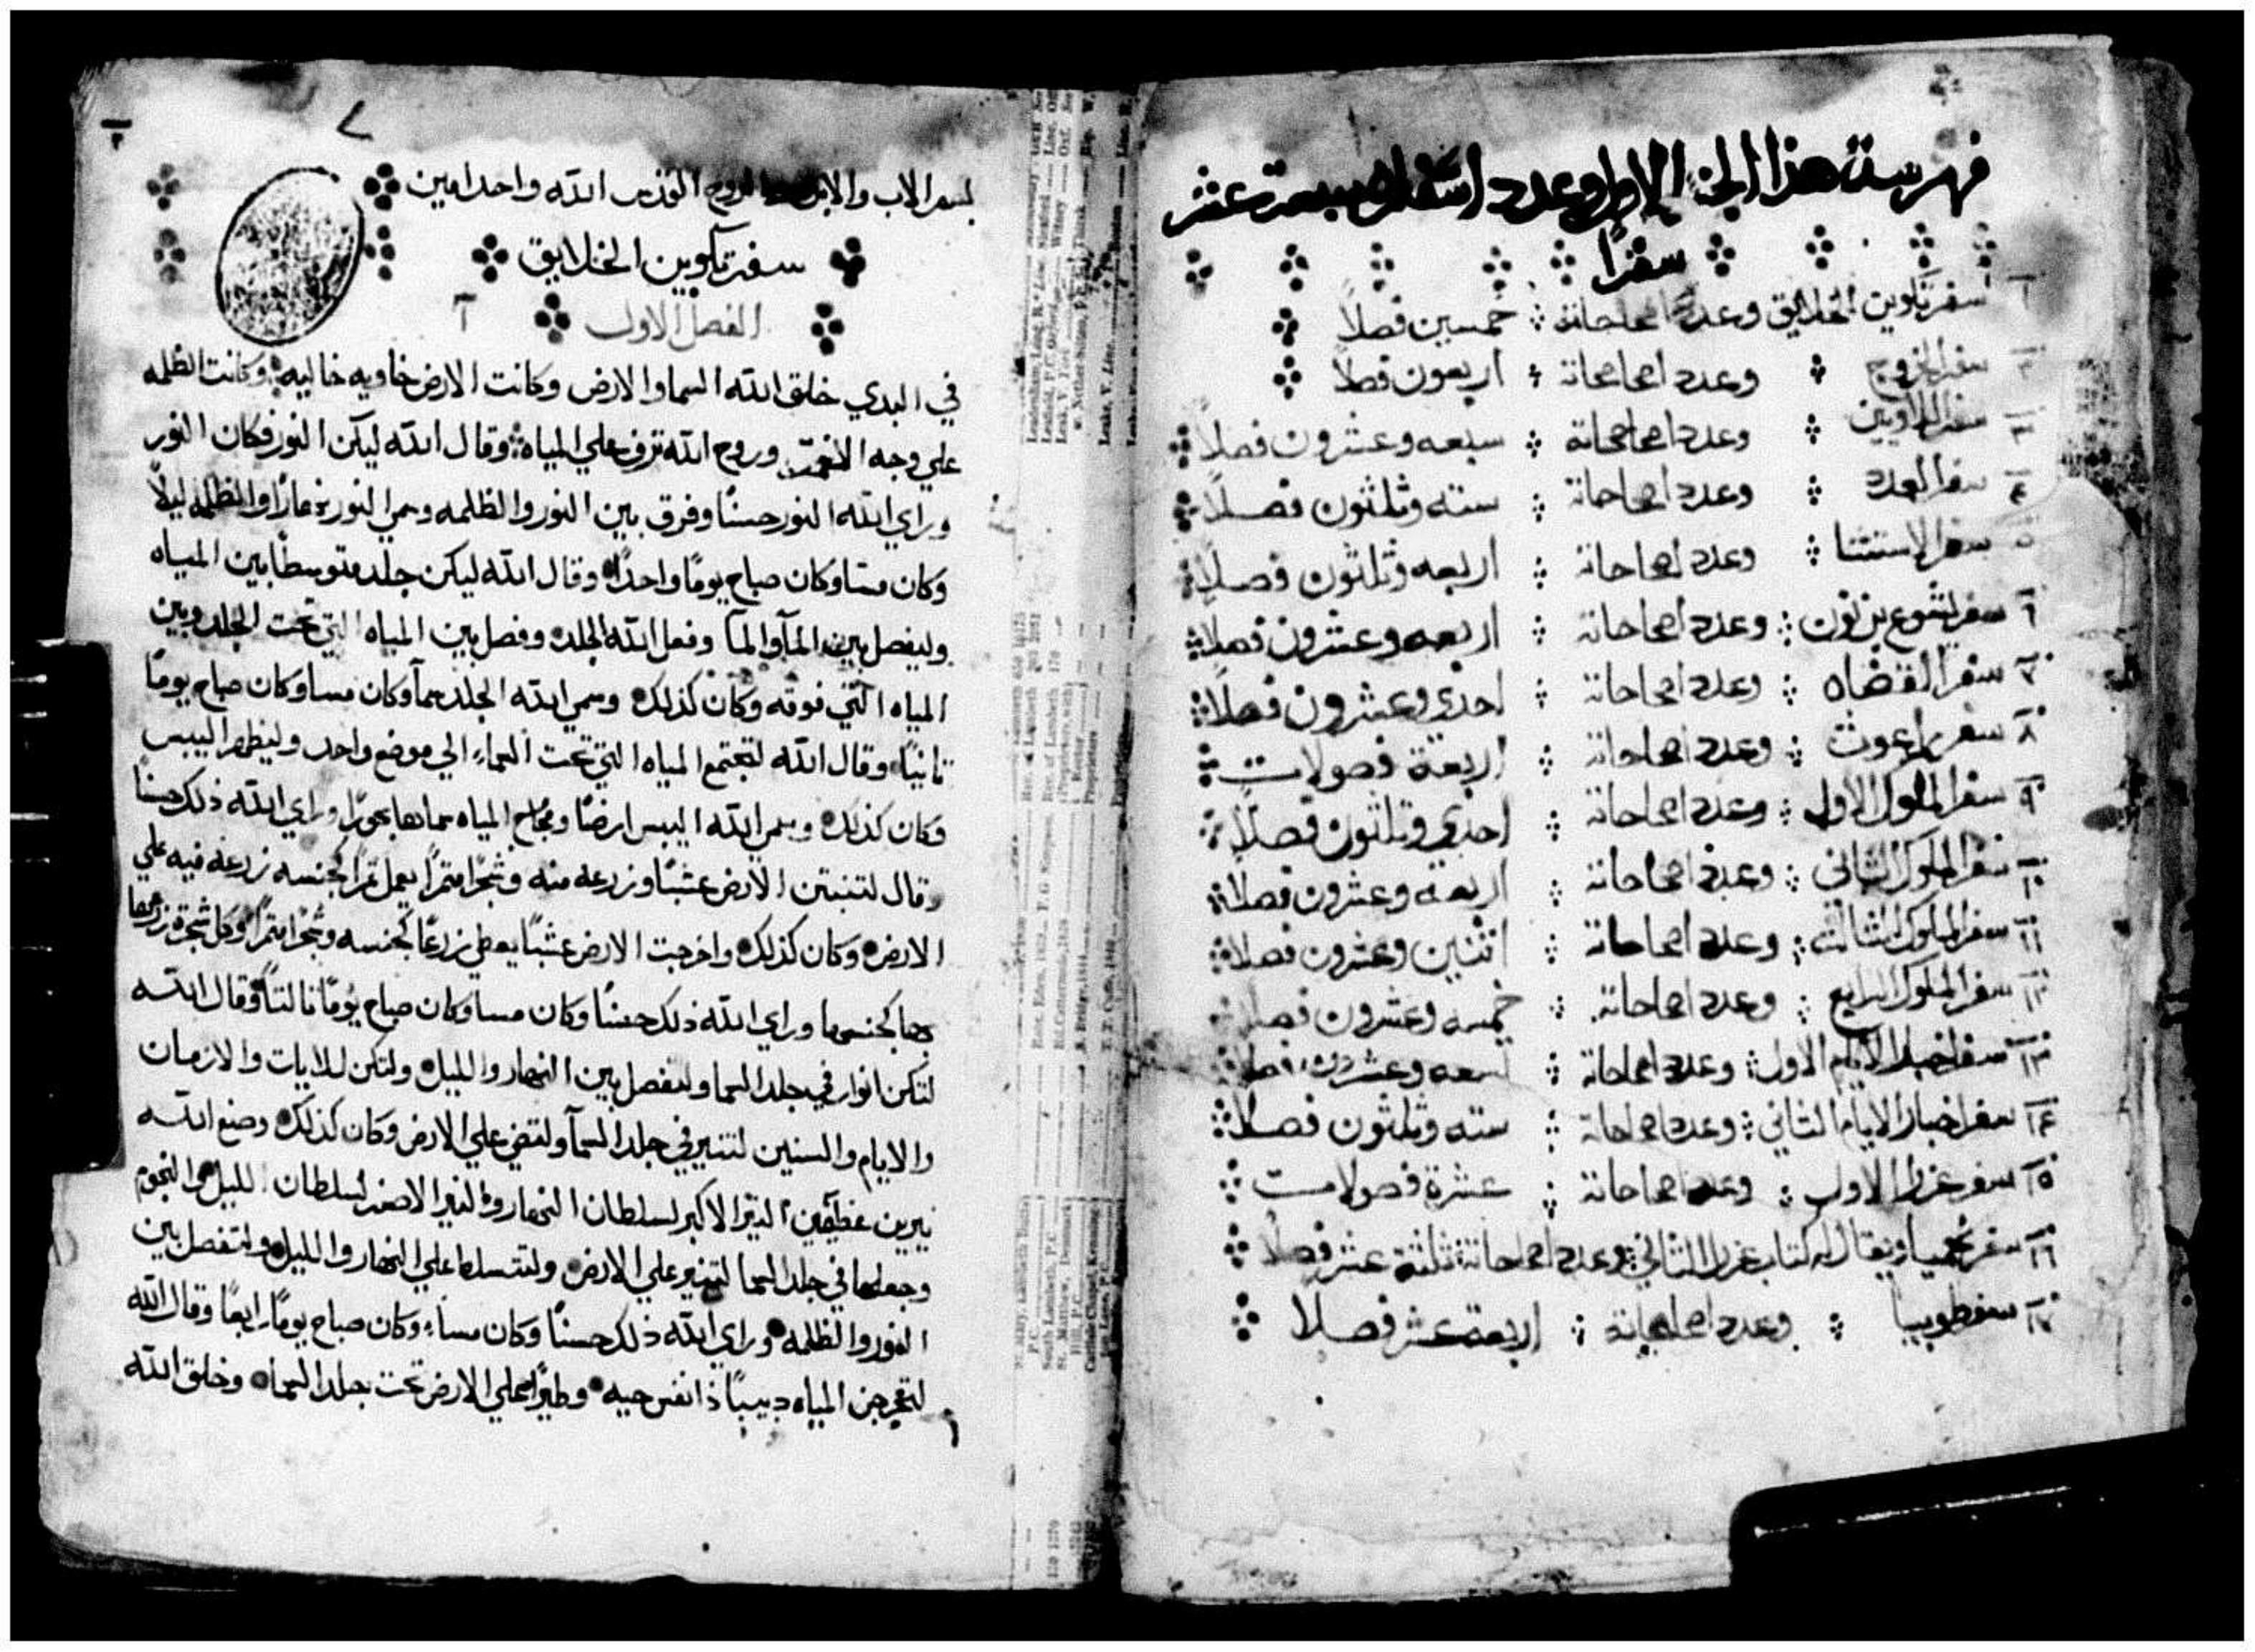 فهرسة هذا الجز الاول وعدد اسفاره سبعة عشر
سفرًا
١ سفر تكوين الخلايق وعدد اصحاحاته خمسين فصلاً
٢ سفر الخروج وعدد اصحاحاته اربعون فصلاً
٣ سفر اللاويين وعدد اصحاحاته سبعه وعشرون فصلاً
٤ سفر العدد وعدد اصحاحاته سته وثلثون فصلاً
٥ سفر الاستثنا وعدد اصحاحاته اربعه وثلثون فصلاً
٦ سفر يشوع بن نون وعدد اصحاحاته اربعه وعشرون فصلاً
٧ سفر القضاه وعدد اصحاحاته احدي وعشرون فصلاً
٨ سفر راعوث وعدد اصحاحاته اربعة فصولات
٩ سفر الملوك الاول وعدد اصحاحاته احدي وثلثون فصلاً
١٠ سفر الملوك الثاني وعدد اصحاحاته اربعه وعشرون فصلاً
١١ سفر الملوك الثالث وعدد اصحاحاته اثنين وعشرون فصلاً
١٢ سفر الملوك الرابع وعدد اصحاحاته خمسه وعشرون فصلاً
١٣ سفر اخبار الايام الاول وعدد اصحاحاته تسعه وعشرون فصلاً
١٤ سفر اخبار الايام الثاني وعدد اصحاحاته سته وثلثون فصلاً
١٥ سفر عزرا الاول وعدد اصحاحاته عشرة فصولات
١٦ سفر نحميا ويقال له كتاب عزرا الثاني وعدد اصحاحاته ثلثة عشر فصلاً
١٧ سفر طوبيا وعدد اصحاحاته اربعة عشر فصلا
٢
بسم الاب والابن والروح القدس الله واحد امين
سفر تكوين الخلايق
الفصل الاول ١
في البدي خلق الله السما والارض وكانت الارض خاويه خاليه وكانت الظلمه
علي وجه الغمر وروح الله ترف علي المياه وقال الله ليكن النور فكان النور
وراي الله النور حسنًا وفرق بين النور والظلمه وسمي النور نهارًا والظلمه ليلاً
وكان مسا وكان صباح يومًا واحدًا وقال الله ليكن جلد متوسطًا بين المياه
وليفصل بين المآ والمآ وفعل الله الجلد وفصل بين المياه التي تحت الجلد وبين
المياه التي فوقه وكان كذلك وسمي الله الجلد سمآ وكان مسا وكان صباح يومًا
ثانيًا وقال الله لتجتمع المياه التي تحت السماء الي موضع واحد وليظهر اليبس
وكان كذلك وسمي الله اليبس ارضًا ومجامع المياه سماها بحورًا وراي الله ذلك حسنًا
وقال لتنبتن الارض عشبًا وزرعه منه وشجرًا مثمرًا يعمل ثمرًا كجنسه زرعه فيه علي
الارض وكان كذلك واخرجت الارض عشبًا يعطي زرعًا كجنسه وشجرًا مثمرًا وكل شجرة زرعها
كجنسها وراي الله ذلك حسنًا وكان مسا وكان صباح يومًا ثالثًا وقال الله
لتكن انوار في جلد السما ولتفصل بين النهار والليل ولتكن للايات والازمان
والايام والسنين لتنير في جلد السمآ ولتضي علي الارض وكان كذلك وصنع الله
نيرين عظيمين النير الاكبر لسلطان النهار والنير الاصغر لسلطان الليل والنجوم
وجعلها في جلد السما لتنير علي الارض ولتتسلط علي النهار والليل ولتفصل بين
النور والظلمه وراي الله ذلك حسنًا وكان مساء وكان صباح يومًا رابعًا وقال الله
لتخرجن المياه دبيبًا ذا نفس حيه وطيرًا علي الارض تحت جلد السما وخلق الله